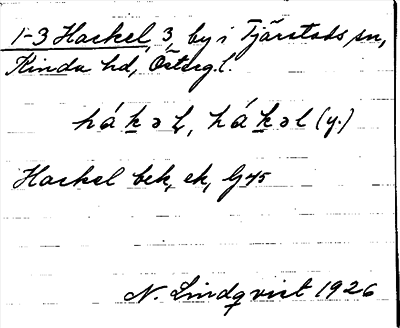 1-3 Hackel, 3 by i Tjärstads sn,
Kinda hd, Österg.l.
hákəl, hákəl (y.)
Hackel bek, ek, G45
N. Lindqvist 1926